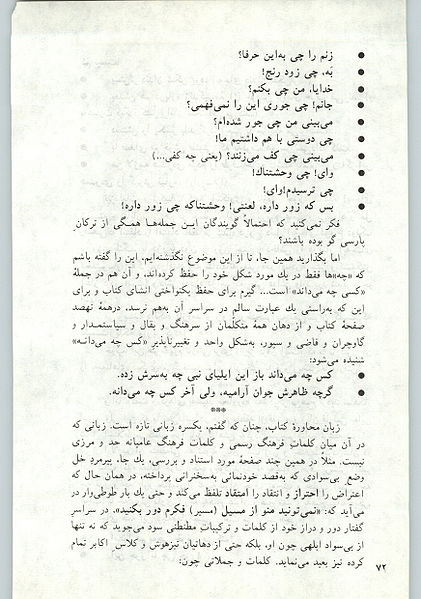 ● زنم را چی به‌این حرفا؟
● بَه، چی زود رنج!
● خدایا، من چی بکنم؟
● جانم! چی جوری این را نمی‌فهمی؟
● می‌بینی من چی جور شده‌ام؟
● چی دوستی با هم داشتیم ما!
● می‌بینی چی کف می‌زنند؟ (یعنی چه کفی...)
● وای! چی وحشتناك!
● چی ترسیدم!وای!
● بس که زور داره، لعنتی! وحشتناکه چی زور داره!
فکر نمی‌کنید که احتمالاً گویندگان این جمله‌ها همگی از ترکان
پارسی گو بوده باشند؟
اما بگذارید همین جا، تا از این موضوع نگذشته‌ایم، این را گفته باشم
که «چه»ها فقط در یك مورد شکل خود را حفظ کرده‌اند، و آن هم در جملهٔ
«کسی چه می‌داند» است... گیرم برای حفظ یکنواختی انشای کتاب و برای
این که به‌راستی یك عبارت سالم در سراسر آن به‌هم نرسد، درهمهٔ نهصد
صفحهٔ کتاب و از دهان همهٔ متکلمان از سرهنگ و بقال و سیاستمدار و
گاوچران و قاضی و سپور، به‌شکل واحد و تغییرناپذیر «کس چه می‌دانـه»
شنیده می‌شود:
● کس چه می‌داند باز این ایلیای نبی چه به‌سرش زده.
● گرچه ظاهرش جوان آرامیه، ولی آخر کس چه می‌دانه.
***
زبان محاورهٔ کتاب، چنان که گفتم، یکسره زبانی تازه است. زبانی که
در آن میان کلمات فرهنگ رسمی و کلمات فرهنگ عامیانه حد و مرزی
نیست. مثلاً در همین چند صفحهٔ مورد استناد و بررسی، یك جا، پیرمردِ خل
وضعِ بی‌سوادی که به‌قصد خودنمائی به‌سخنرانی پرداخته، در همان حال که
اعتراض را احتراز و انتقاد را امتقاد تلفظ می‌کند و حتی یك بار طوطی‌وار در
می‌آید که: «نمی‌تونید منو از مسیل (مسیر) فکرم دور بکنید»، در سراسرِ
گفتار دور و دراز خود از کلمات و ترکیباتِ مطنطنی سود می‌جوید که نه تنها
از بی‌سواد ابلهی چون او، بلکه حتی از دهاتیان تیزهوش و کلاس اکابر تمام
کرده نیز بعید می‌نماید. کلمات و جملاتی چون:
۷۲